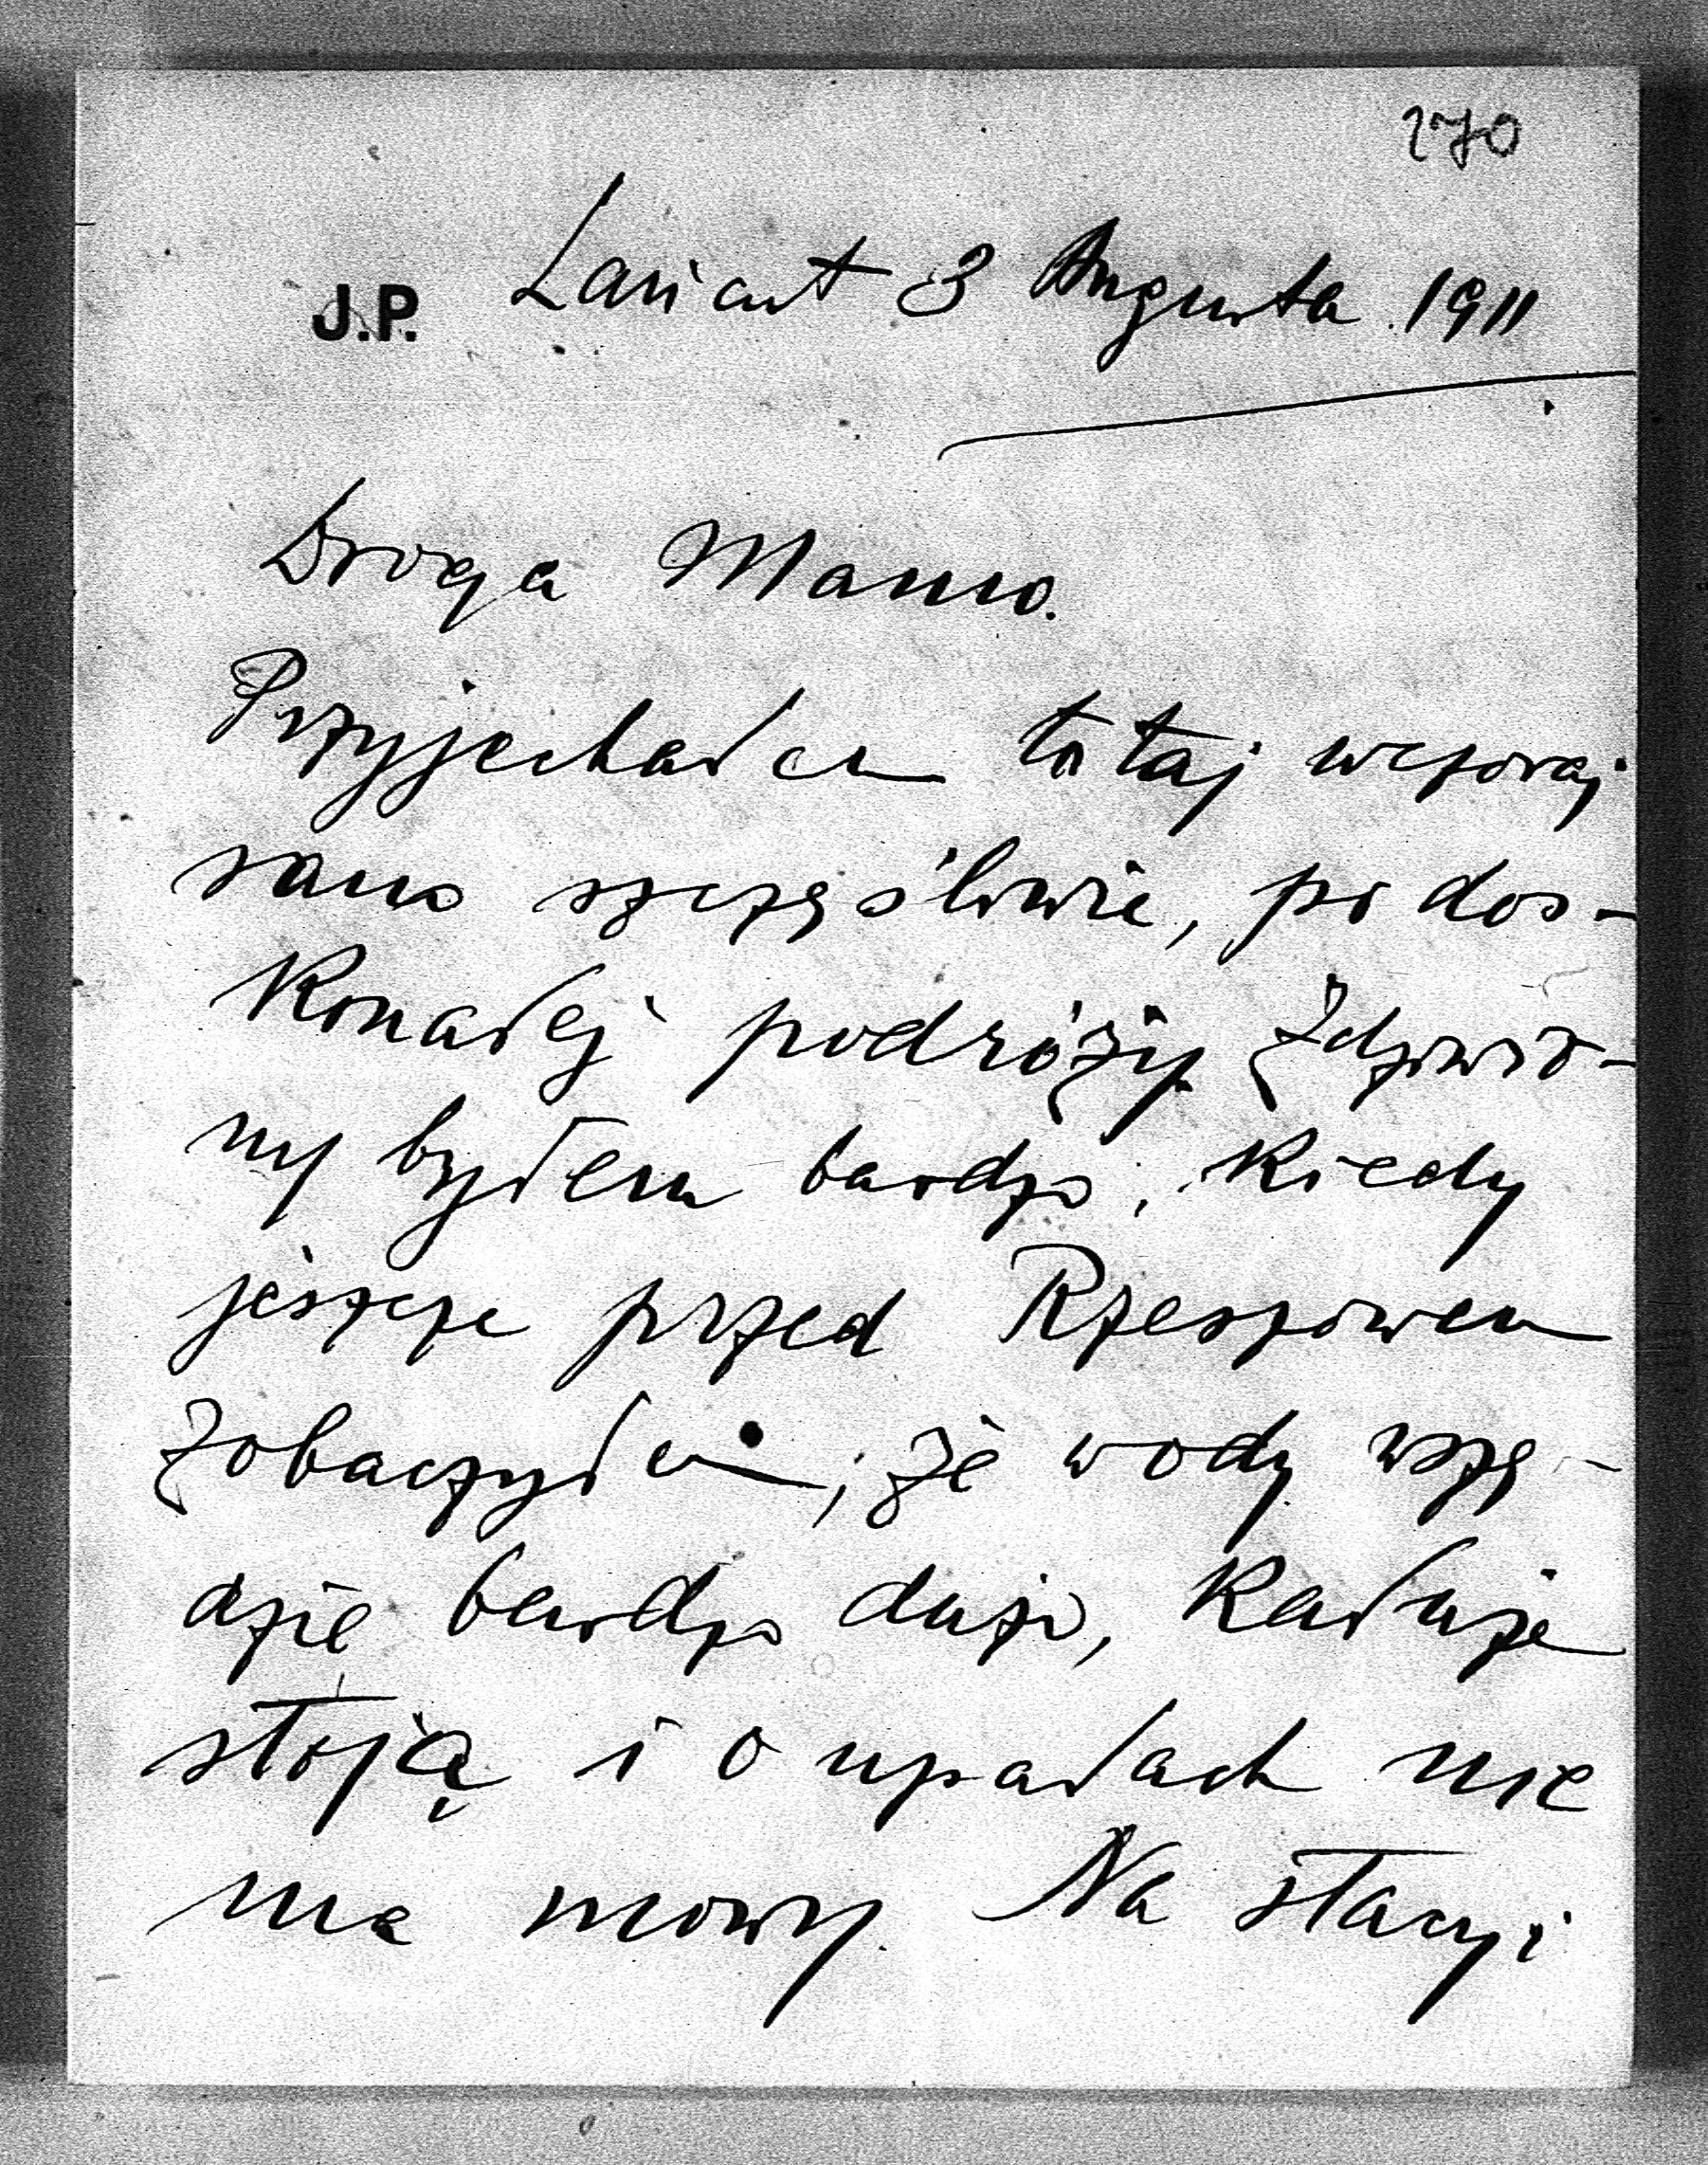 270
J.P. Łańcut 3 Augusta 1911
Droga Mamo.
Przyjechałem tutaj wczoraj
rano szczęśliwie, po dos-
konałej podróży. Zdziwio-
ny byłem bardzo, kiedy
jeszcze przed Rzeszowem
zobaczyłem, że wody wszę-
dzie bardzo dużo, kałuże
stoją i o upałach nie
ma mowy. Na stacyi